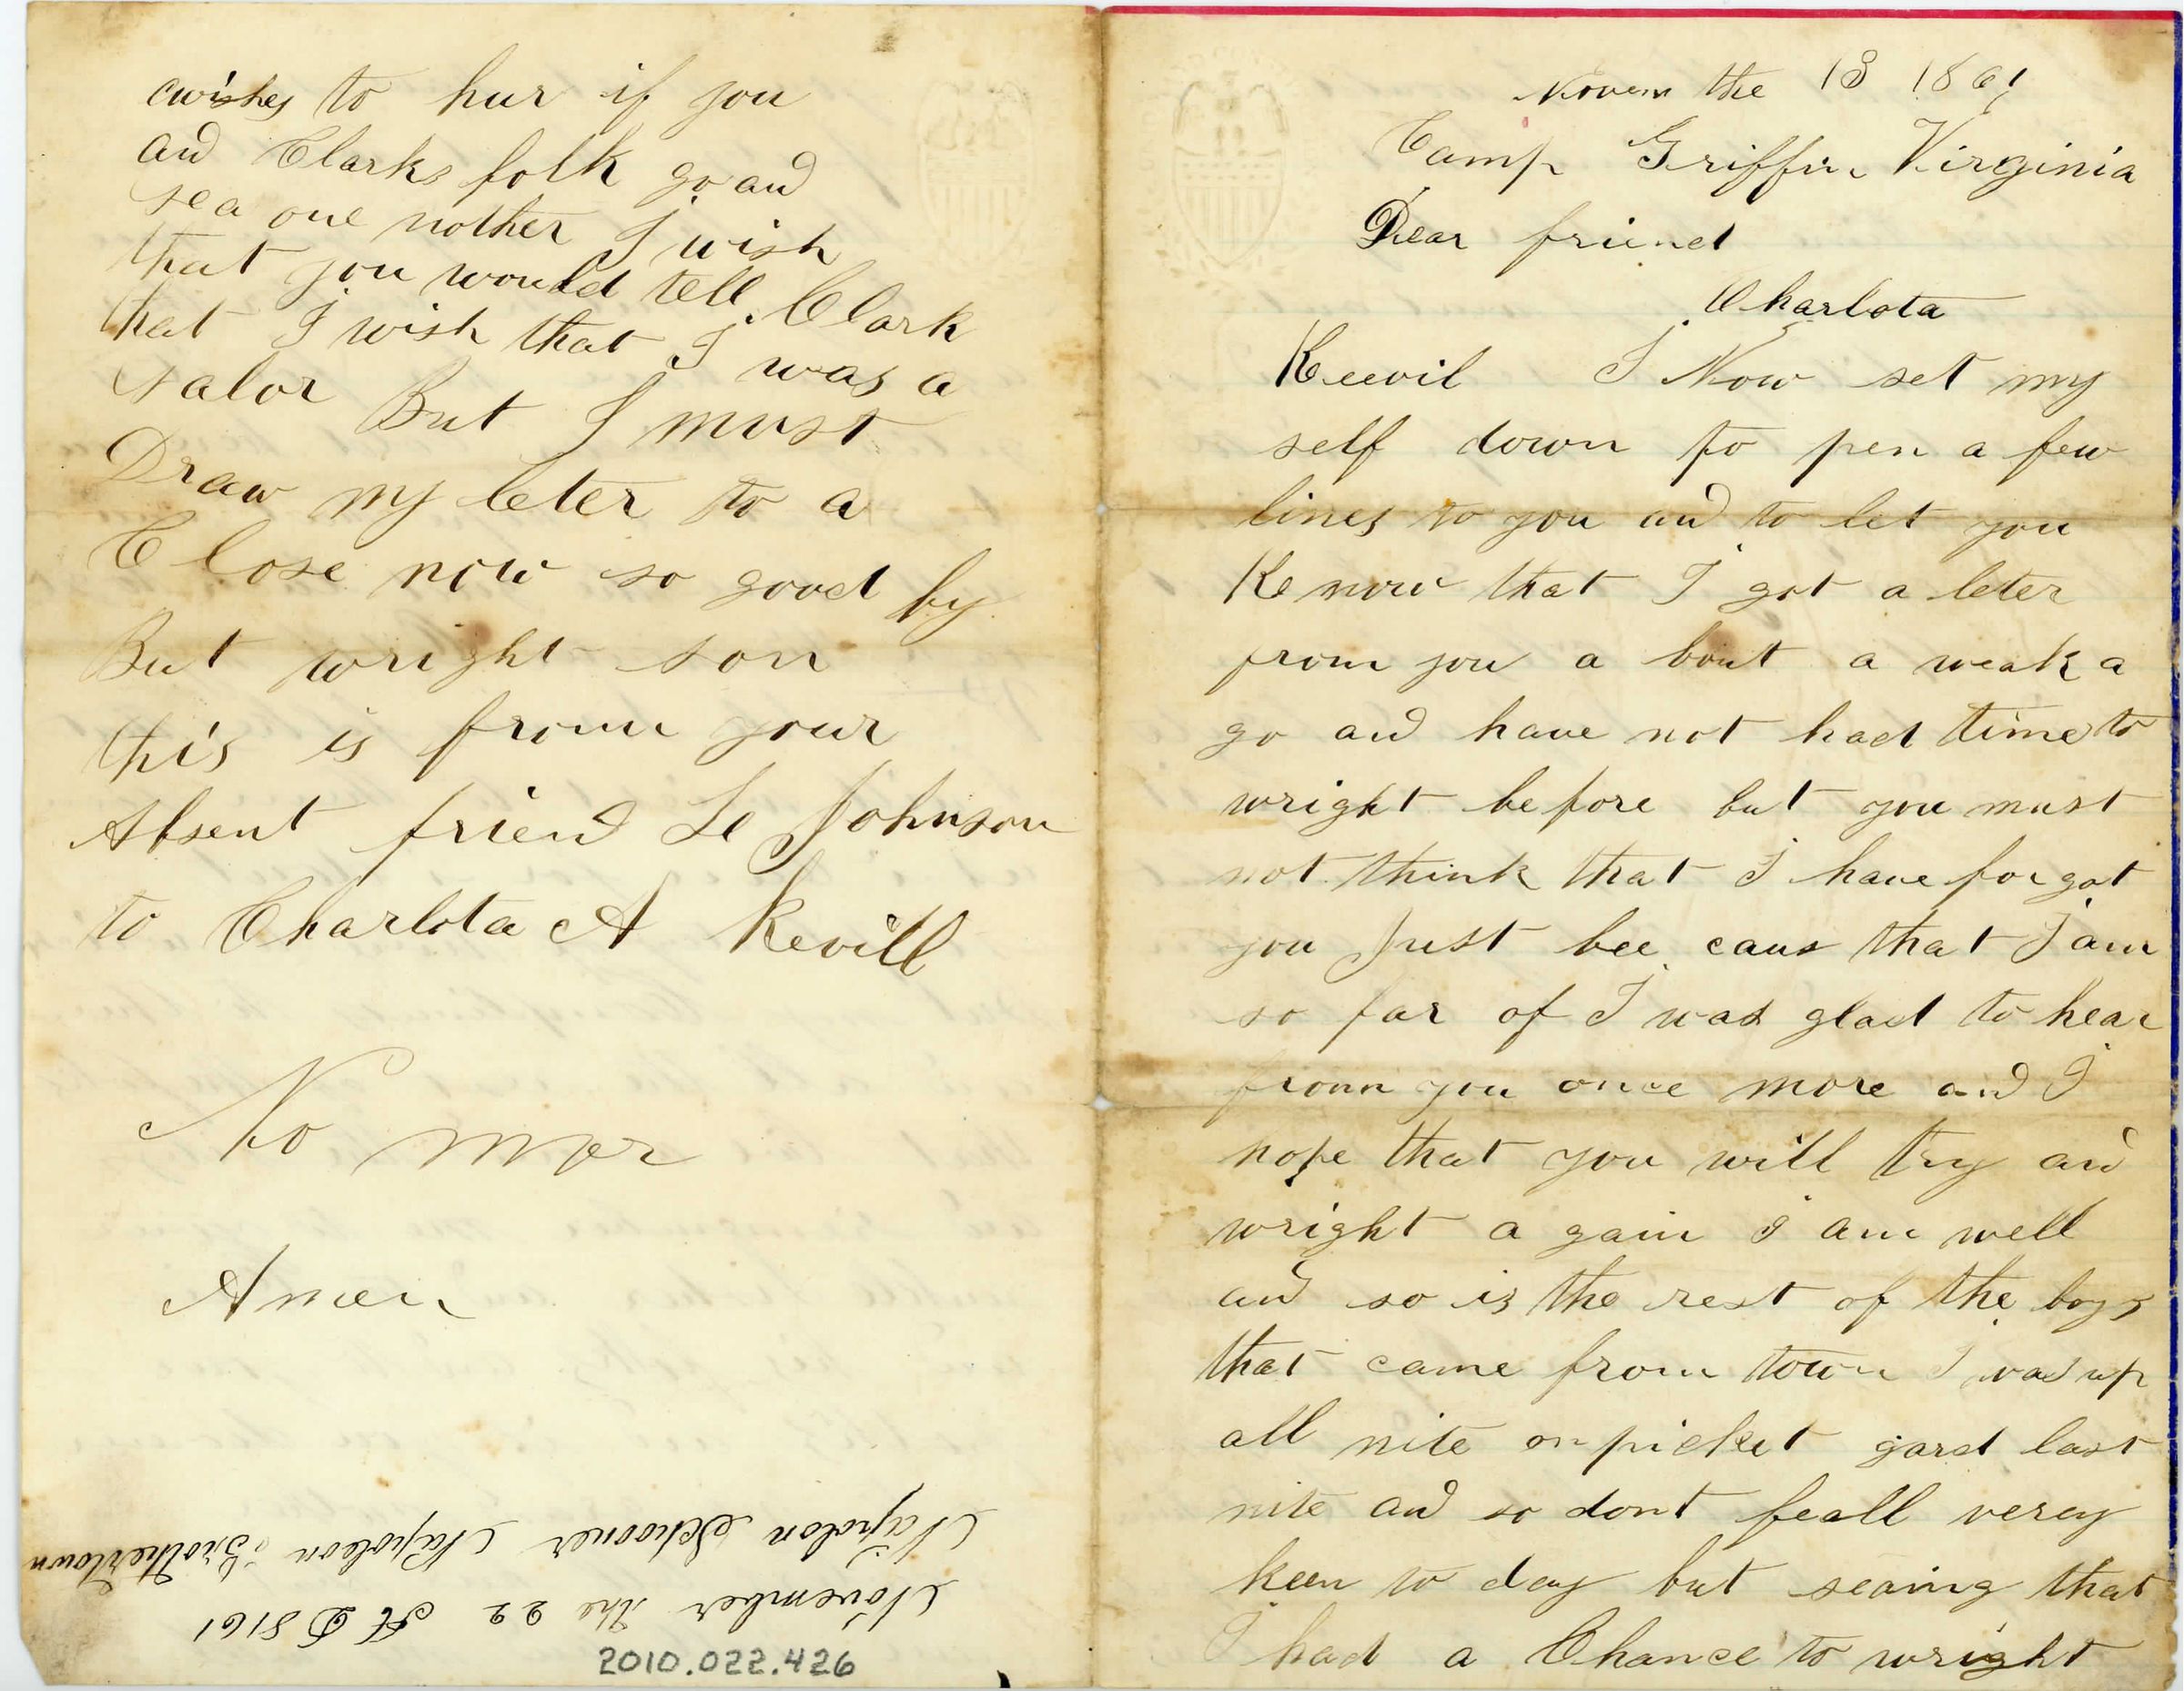 Novem the 13 1861
Camp Griffin Virginia
Dear friend
Charlota
Keevil I Now set my
self down to pen a few
lines to you and to let you
Kenow that I got a leter
from you a bout a weak a
go and have not had time to
wright before but you must
not think that I have forgot
you Just bee caus that I am
so far of I was glad to hear
from you once more and I
hope that you will try and
wright a gain I am well
and so is the rest of the boys
that came from town I was up
all nite on picket gard last
nite and so dont feall verey
keen to day but seaing that
I had a Chance to wright
wishes to hur if you
and Clarks folk go and
sea one nother I wish
that you would tell Clark
that I wish that I was a
salor But I must
Draw my leter to a
Close now so good by
But wright son
this is from your
Absent friend Le Johnson
to Charlota A Kevill
No mor
Amen
November the 22 A D 8161
Napolon Schooner Napoleon Brothertown
2010.022.426